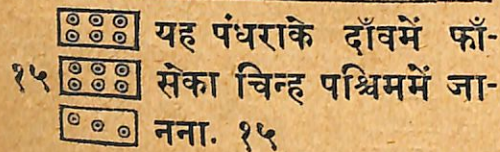 यह पंधराके दाँवमें फाँ-
१५ सेका चिन्ह पश्चिममें जा-
नना. १५